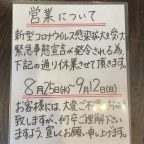 営業について
新型コロナウイルス感染拡大を受け
緊急事態宣言が発令される為、
下記の通り休業させて頂きます。
8月25日(水)〜9月12日(日)
お客様には、大変ご不便をおかけ
致しますが、何卒ご理解下さい
ますよう宜しくお願い申し上げます。